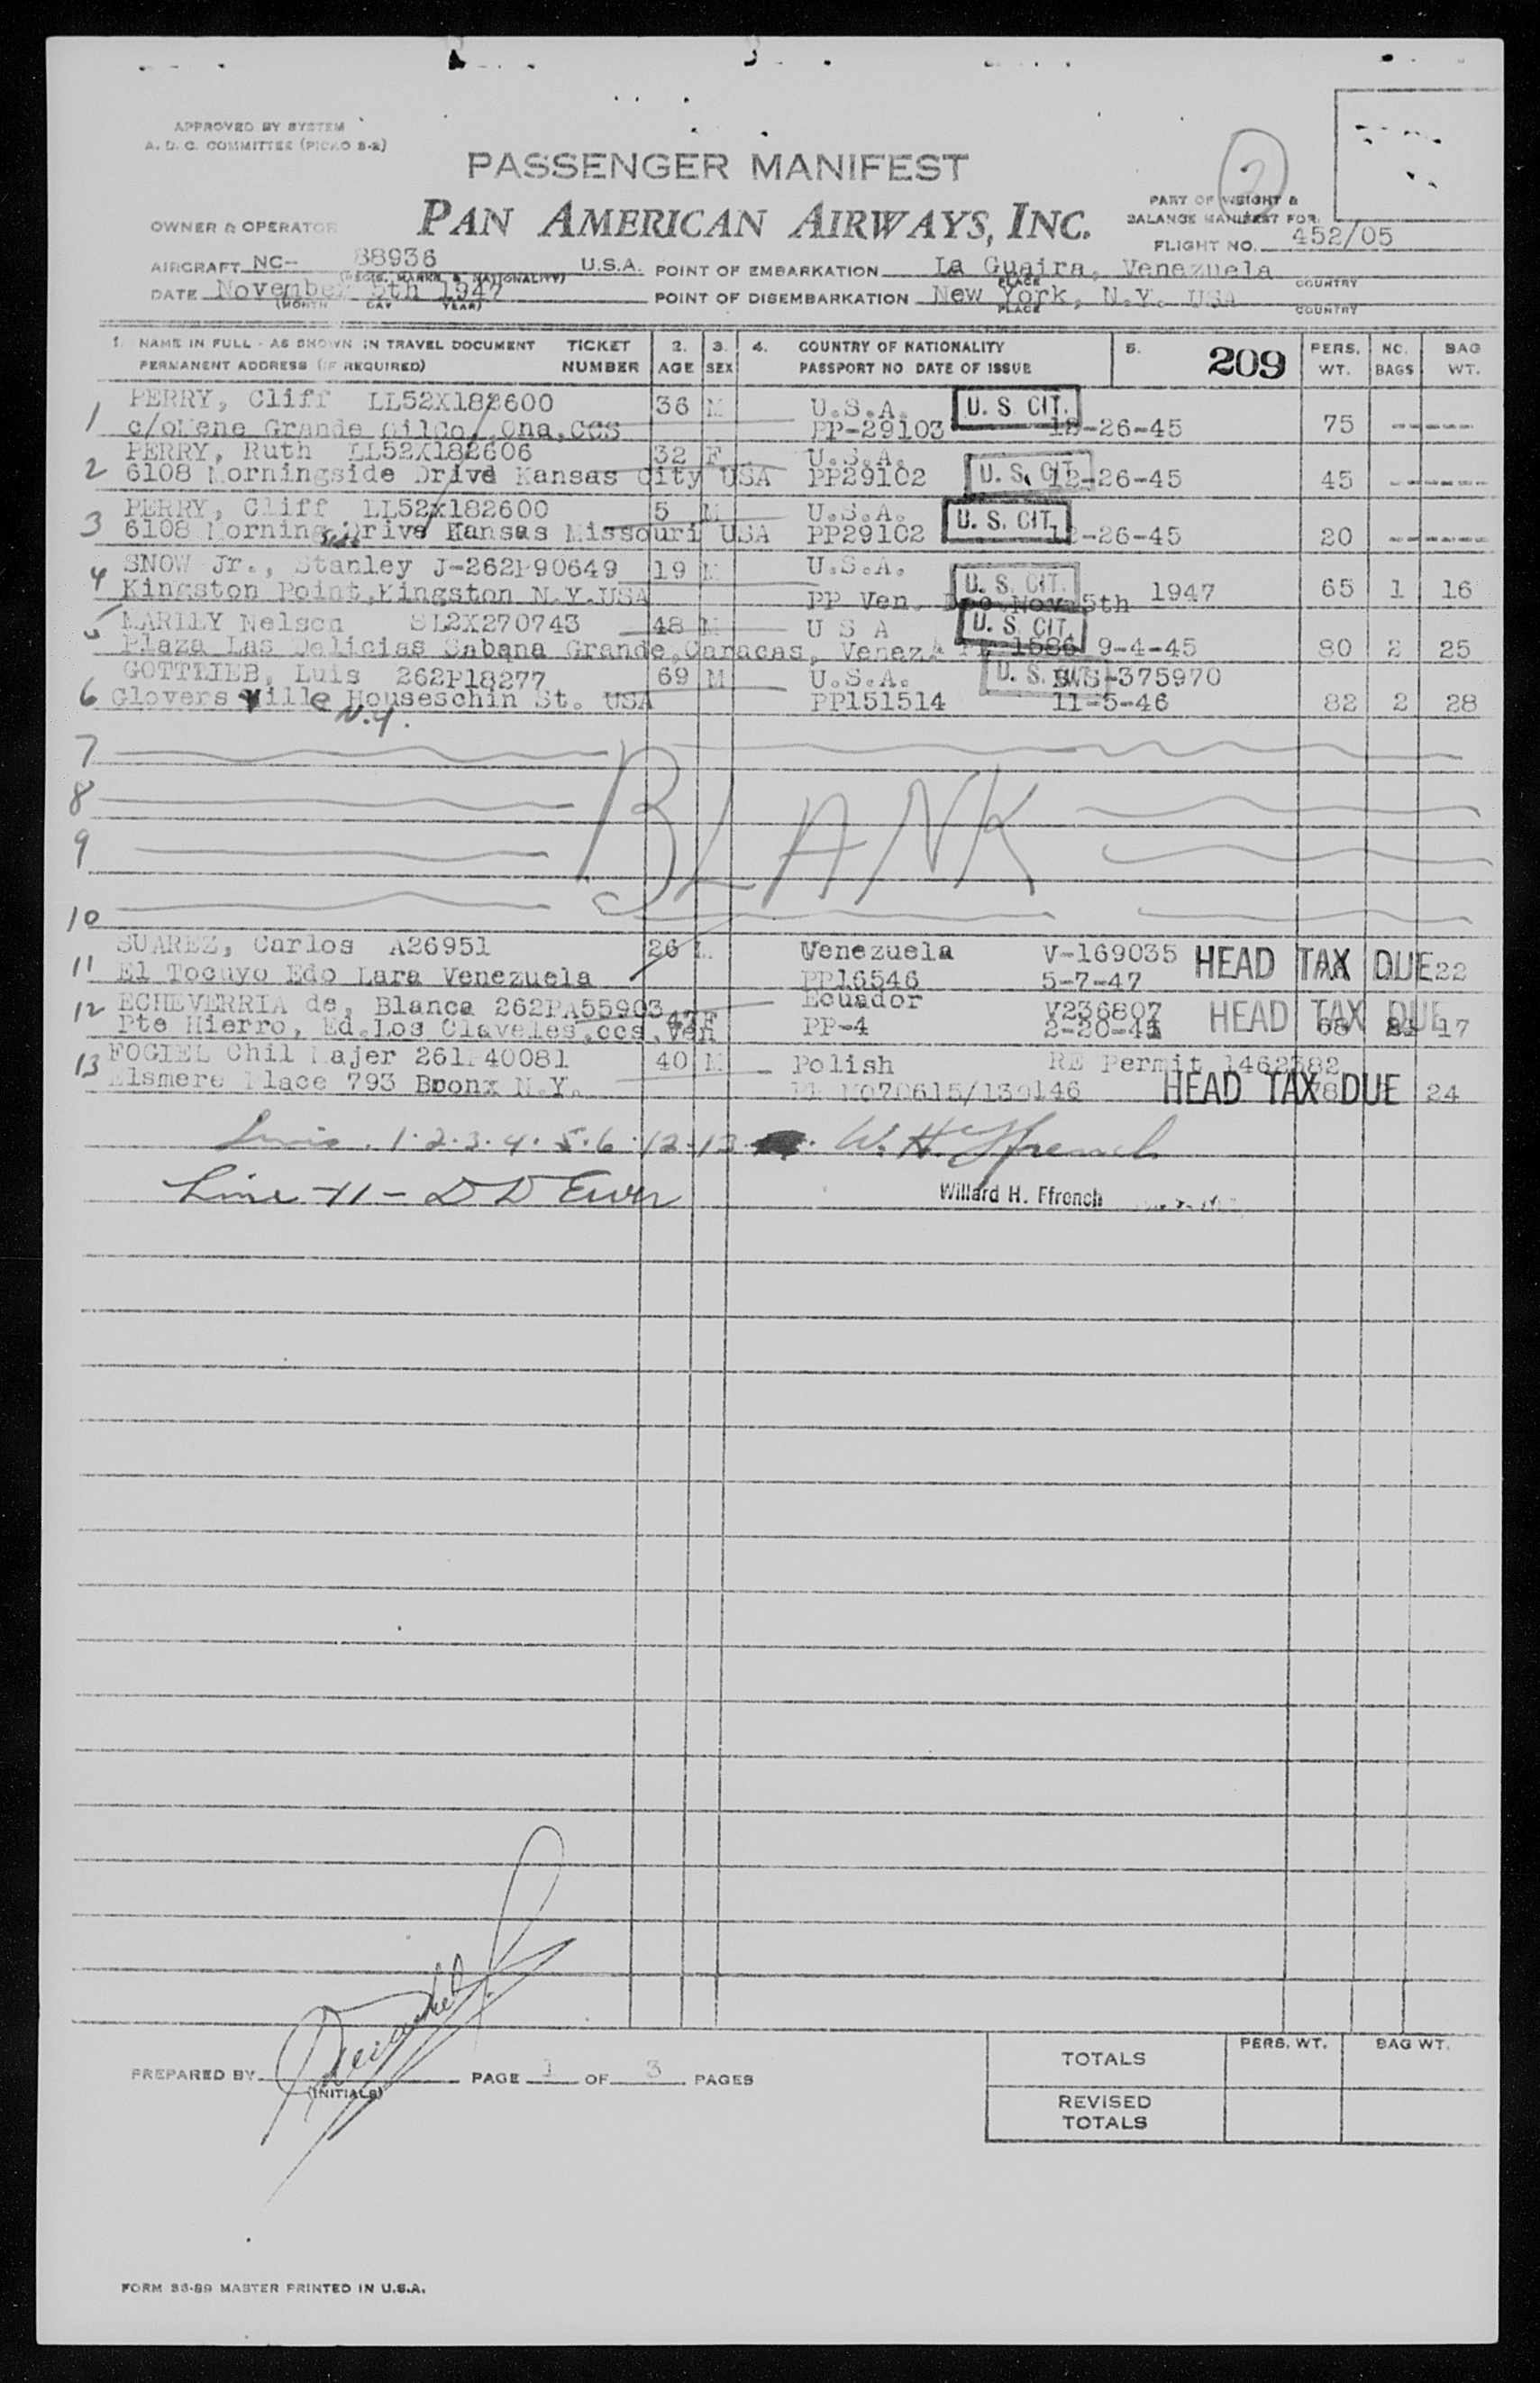 APPROVED BY SYSTEM
A. D. C. COMMITTEE (PICAO S-2)
2
PASSENGER MANIFEST
PART OF WEIGHT &
BALANCE MANIFEST FOR
OWNER & OPERATOR PAN AMERICAN AIRWAYS, INC.
FLIGHT NO. 452/05
AIRCRAFT NC- 88936 U.S.A. POINT OF EMBARKATION La Guaira, Venezuela
(REGIS. MARKS & NATIONALITY) PLACE COUNTRY
DATE November 5th 1947 POINT OF DISEMBARKATION New York, N.Y. USA
(MONTH DAY YEAR) PLACE COUNTRY
1. NAME IN FULL - AS SHOWN IN TRAVEL DOCUMENT TICKET 2. 3. 4. COUNTRY OF NATIONALITY 5. 209 PERS. NO. BAG
PERMANENT ADDRESS (IF REQUIRED) NUMBER AGE SEX PASSPORT NO DATE OF ISSUE WT. BAGS WT.
1 PERRY, Cliff LL52X182600 36 M U.S.A. U. S CIT.
c/oMene Grande OilCo, Ona, CCS PP-29103 12-26-45 75 -----
2 PERRY, Ruth LL52X182606 32 F U.S.A.
6108 Morningside Drive Kansas City USA PP29102 U. S. CIT. 12-26-45 45 -----
3 PERRY, Cliff LL52X182600 5 M U.S.A. U. S. CIT.
6108 Morning side Drive Kansas Missouri USA PP29102 12-26-45 20 ------
4 SNOW Jr., Stanley J-262P90649 19 M U.S.A. U. S. CIT.
Kingston Point, Kingston N.Y. USA PP Ven. Nov 5th 1947 65 1 16
5 MARILY Nelson SL2X270743 48 M U S A U. S. CIT.
Plaza Las Delicias Sabana Grande, Caracas, Venez. 1586 9-4-45 80 2 25
6 GOTTLIEB, Luis 262P18277 69 M U.S.A. U. S. BWS-375970
Gloversville Houseschin St. USA PP151514 11-5-46 82 2 28
N.Y.
7
8
9
BLANK
10
11 SUAREZ, Carlos A26951 26 M Venezuela V-169035 HEAD TAX DUE 22
El Tocuyo Edo Lara Venezuela PP16546 5-7-47
12 ECHEVERRIA de, Blanca 262PA55903 47 F Ecuador V236807 HEAD TAX DUE
Pte Hierro, Ed. Los Claveles, ccs, Ven PP-4 68 17
13 FOGIEL Chil Majer 261P40081 40 M Polish RE Permit 1462382
Elsmere Place 793 Bronx N.Y. HEAD TAX DUE 78 24
1. 2. 3. 4. 5. 6. 12. 13 W. H. Ffrench
Line - 11 - D D
Willard H. Ffrench
PREPARED BY (INITIALS) PAGE 1 OF 3 PAGES
PERS. WT. BAG WT.
TOTALS
REVISED
TOTALS
FORM 36-89 MASTER PRINTED IN U.S.A.